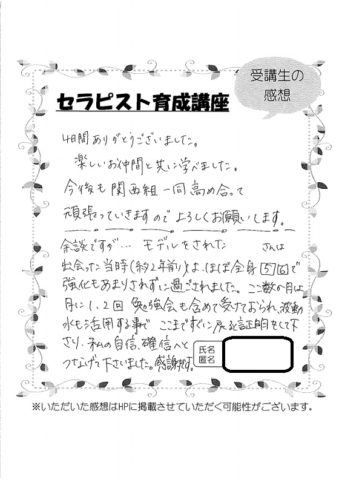 受講生の
感想
セラピスト育成講座
4日間ありがとうございました。
楽しいお仲間と共に学べました。
今後も関西組一同高め合って
頑張っていきますのでよろしくお願いします。
余談ですが… モデルをされた さんは
出会った当時(約2年前)よりほぼ全身で
強化もあまりされずに過ごされました。ここ数か月は
月に1,2回 勉強会も含めて受けておられ、波動
水も活用する事で ここまですぐに 証明をして下
さり、私の自信、確信へと
つなげて下さいました。感謝です。
氏名
匿名
※いただいた感想はHPに掲載させていただく可能性がございます。